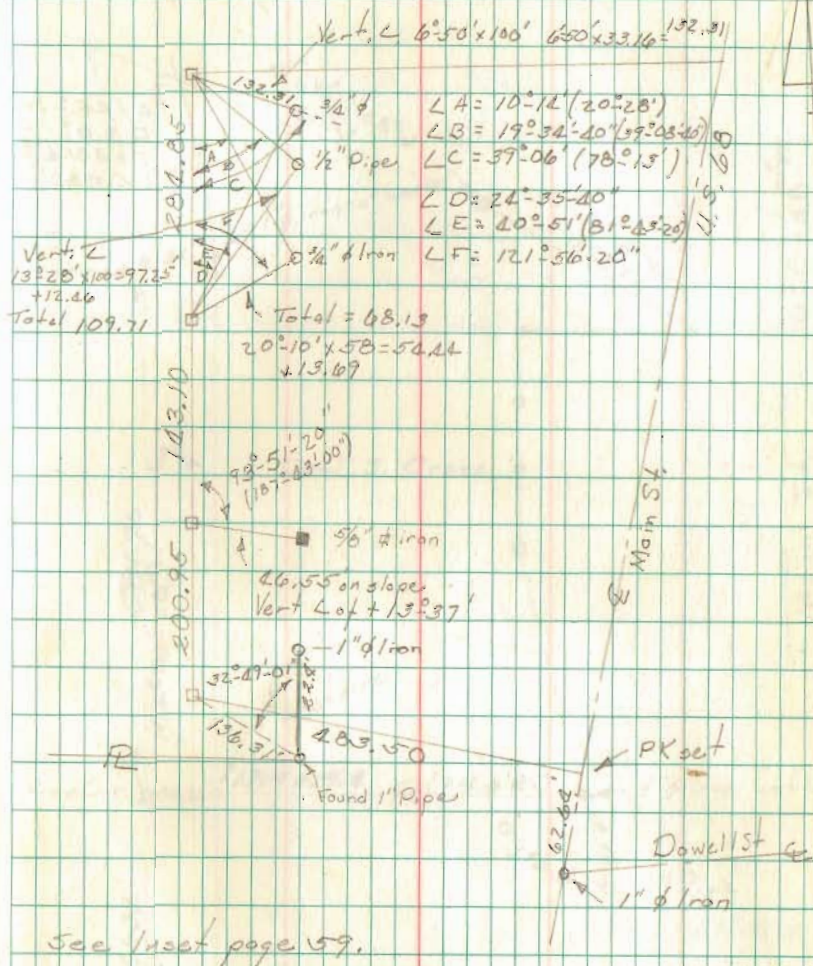 Vert. ∠ 6°-50' x 100' 6°50' x 33.16 = 132.31
132.31
3/4" ϕ
∠ A = 10°-14' (20°-28')
∠ B = 19°-34'-40" (39°-08'-40")
1/2" Pipe
∠ C = 39°-06' (78°-13')
∠ D = 24°-35'-40"
∠ E = 40°-51' (81°-43'-20")
3/4" ϕ Iron
∠ F = 121°-56'-20"
U.S. 68
A
B
C
D
E
F
Vert. ∠
13°-28' x 100 = 97.25'
+12.46
Total 109.71
Total = 68.13
20°-10' x 58 = 54.44
+13.69
143.10
93°-51'-20"
(187°-43'-00")
5/8" ϕ iron
℄ Main St.
46.55' on slope
Vert ∠ of + 13°-37'
200.95
1" ϕ Iron
32°-49'-01"
136.31'
483.50
PK set
PL
Found 1" Pipe
62.64'
Dowell St ℄
1" ϕ Iron
See Inset page 59.